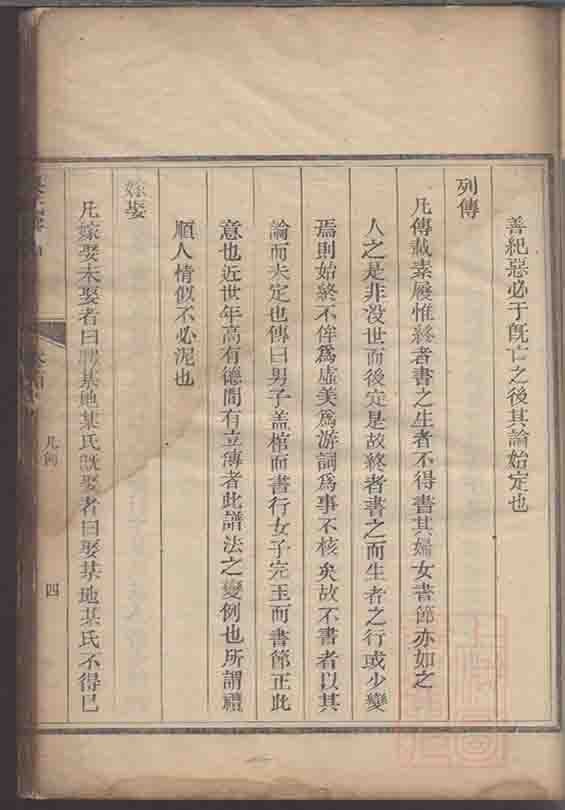 善紀惡必于旣亡之後其論始定也
列傳
凡傳載素履惟終者書之生者不得書其婦女書節亦如之
人之是非没世而後定是故終者書之而生者之行或少變
焉則始終不侔爲虚美爲游詞爲事不核矣故不書者以其
論而未定也傳曰男子盖棺而書行女子完玉而書節正此
意也近世年高有德間有立傳者此譜法之變例也所謂禮
順人情似不必泥也
嫁娶
凡嫁娶未娶者曰聘某地某氏旣娶者曰娶某地某氏不得已
凡例
四